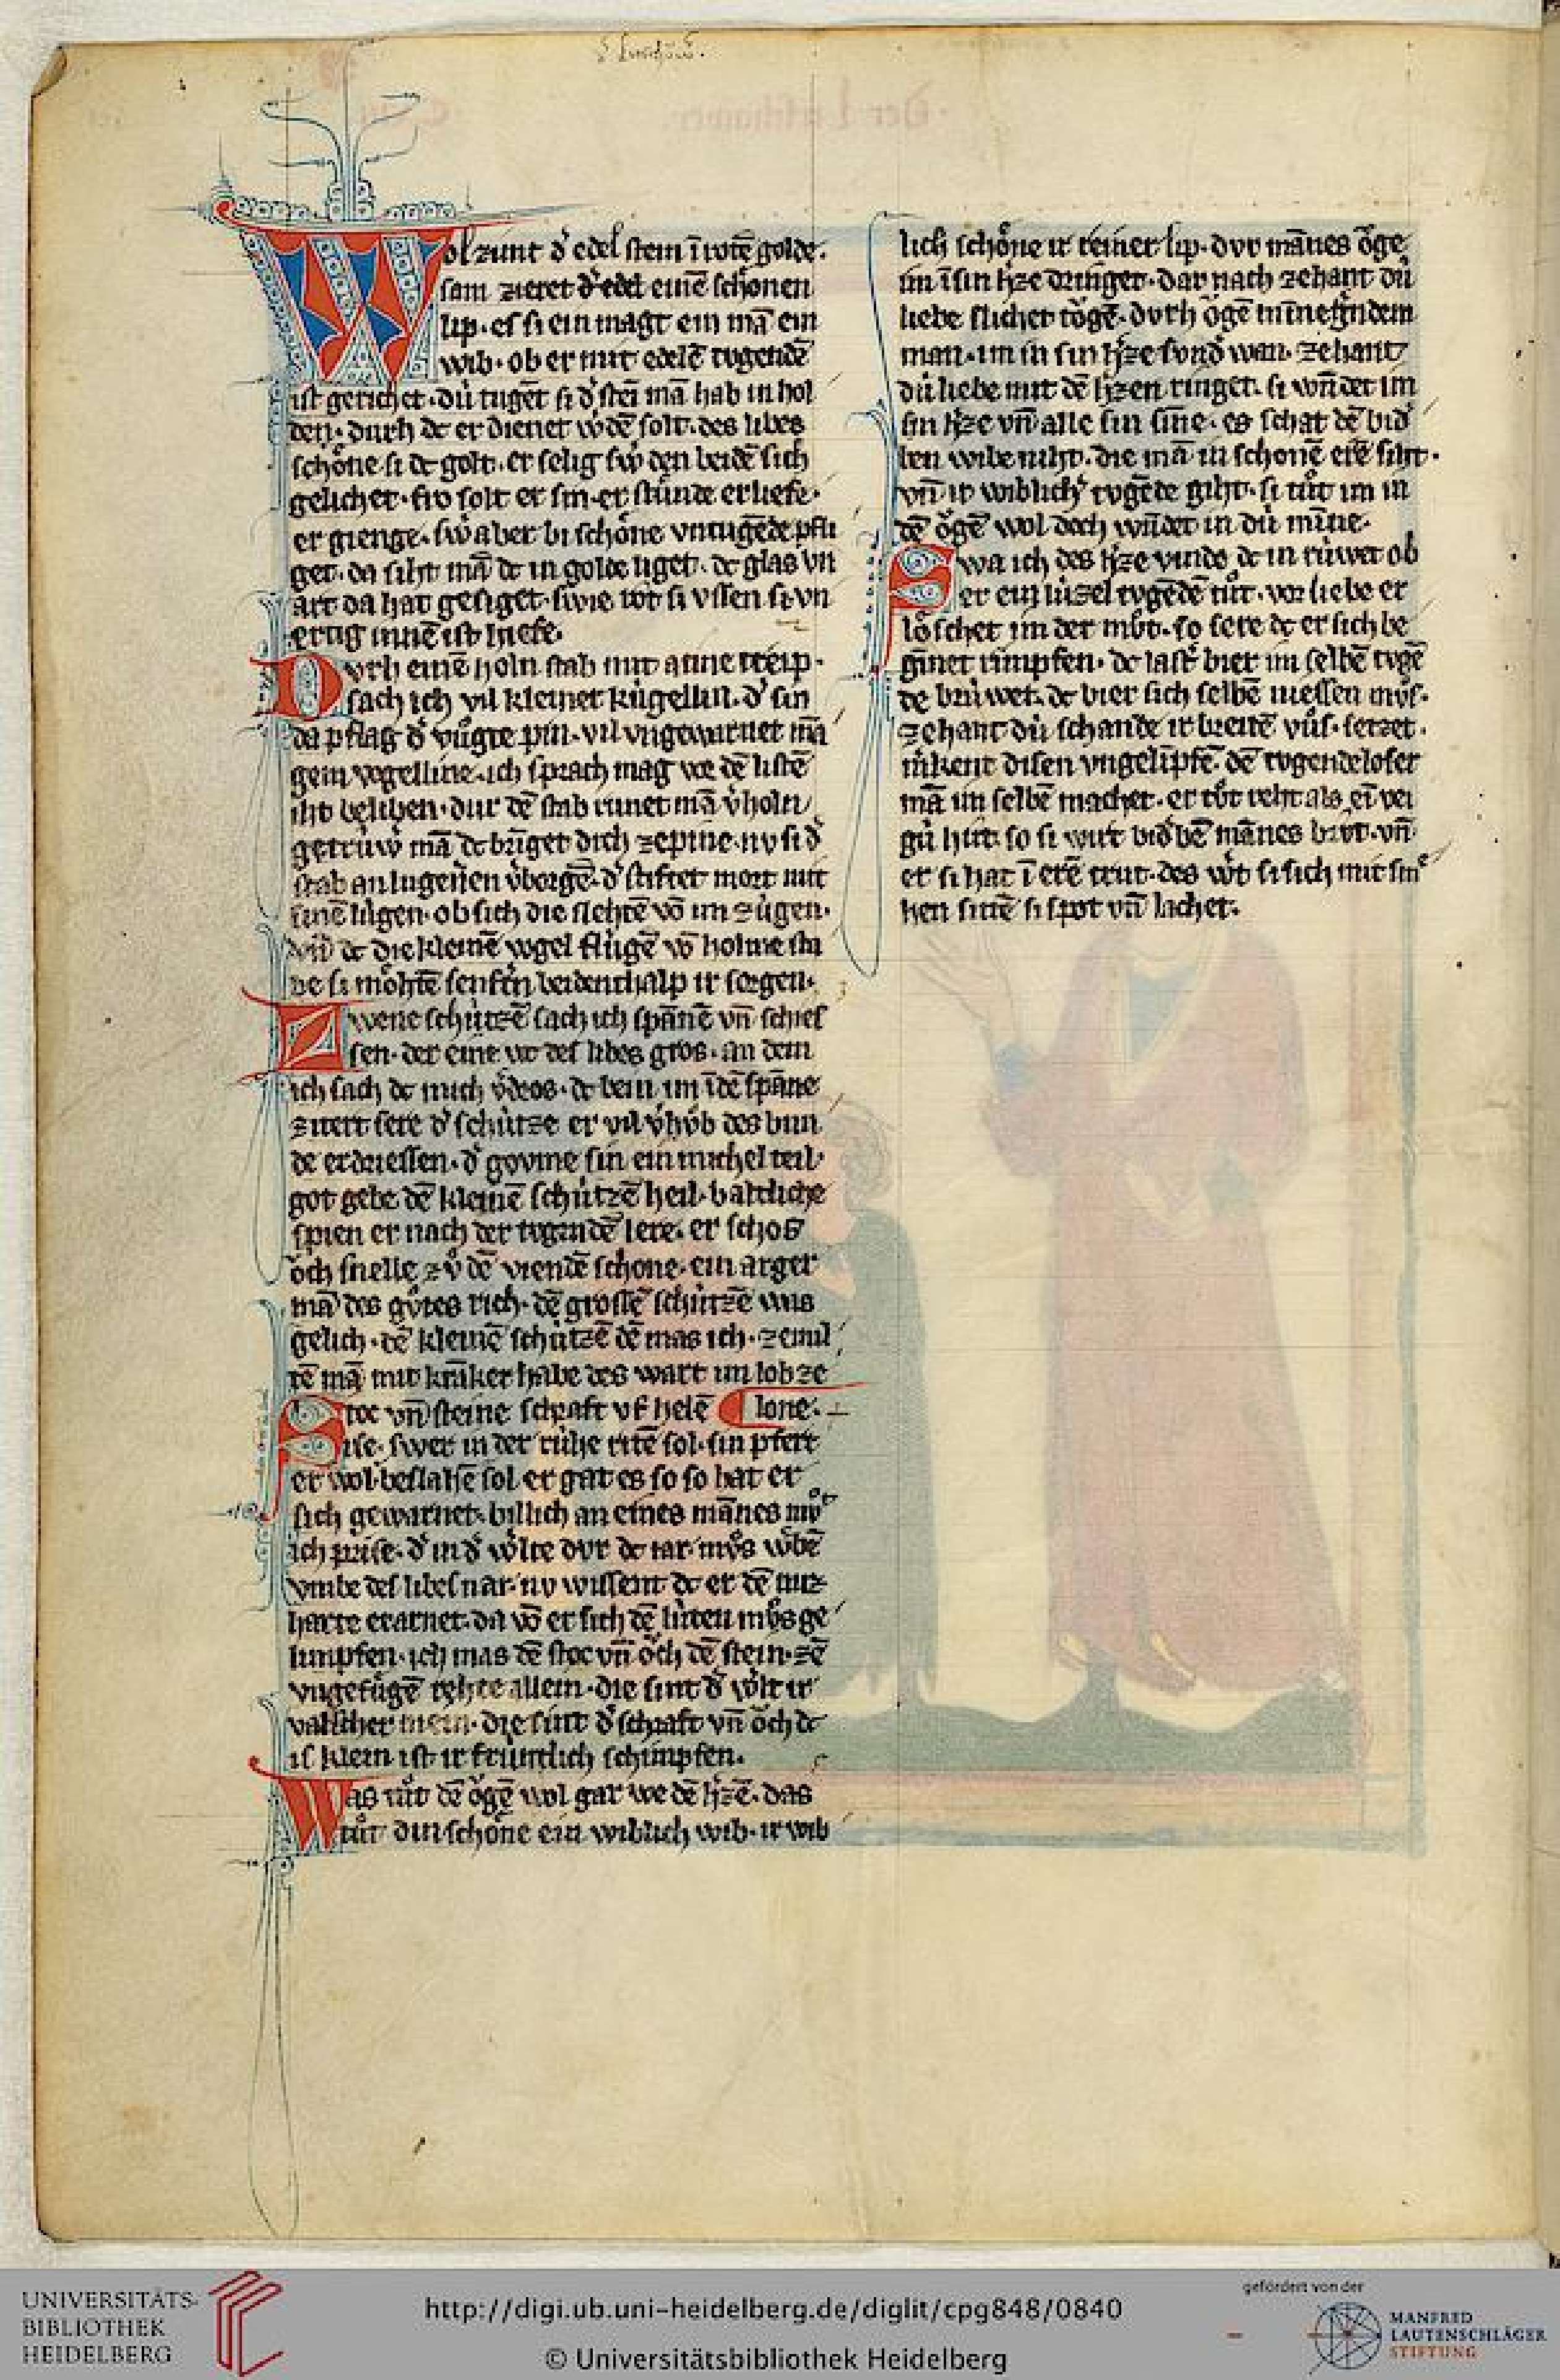 ol zimt d᾽ edel stein ī rotē golde.
sam zieret d᾽ edel einē schonen
lip. es si ein magt ein mā ein
wib. ob er mit edelē tvgendē
ist gerichet. dú tugēt si d᾽ stei mā hab in hol
den. durh dc er dienet w᾽dē solt. des libes
schône si dc golt. er selig sw᾽ den beidē sich
gelichet. swo solt er sin. er stúnde er liefe.
er gienge. sw᾽ aber bi schône vntugēde pfli
get. da siht mā dc in golde liget. dc glas vn
art da hat gesiget. swie rot si vssen si vn
ertig innē ist hiefe.
Dvrh einē holn stab mit atme treip.
sach ich vil kleinet kúgellin. d᾽ sin
da pflag d᾽ vûgte pin. vil vngewarnet mā
gem vogelline. ich sprach mag vō dē listē
iht beliben. dur dē stab runet mā v᾽holn
getrúw᾽ mā dc brīget dich ze pine. nv si d᾽
stab an lugenen v᾽borgē. d᾽ stiftet mort mit
sinē lúgen. ob sich die slehtē vō im zúgen.
vn̄ dc die kleinē vogel flúgē vō holme sta
be si môhtē senftē beidenthalp ir sorgen.
Zwene schútzē sach ich spānē vn̄ schies
sen. der eine wc des libes gros. an dem
ich sach dc mich v᾽dros. dc bein im ī dē spāne
zitert sere d᾽ schútze er vil v᾽hûb des bun
de erdriessen. d᾽ govme sin ein michel teil.
got gebe dē kleinē schútzē heil. baltliche
spien er nach der tvgendē lere. er schos
ôch snelle zû dē vrendē schone. ein arger
mā des gûtes rich. dē grossē schútzē was
gelich. dē kleinē schútzē dē mas ich. ze mil
tē mā mit krāker habe des wart im lob ze
Stoc vn̄ steine schraft vf helē ¶ lone.
ise. swer in der rúhe ritē sol. sin pfert
er wol beslahē sol er gat es so so hat er
sich gewarnet. billich an eines mānes mût
ich prise. d᾽ in d᾽ w᾽lte dvr dc iar mûs w᾽bē
vmbe des libes nar. nv wissent dc er dē nuz
harte erarnet. da vō er sich dē lúten mûs ge
limpfen. ich mas dē stoc vn̄ ôch dē stein. zē
vngefûgē rehte allein. die sint d᾽ w᾽lt ir
valscher mein. die sint d᾽ schraft vn̄ ôch dc
is klein ist ir frúntlich schimpfen.
Was tût dē ôgē wol gar we dē h᾽zē. das
tût din schône ein wiblich wib. ir wib
lich schône ir reiner lip. dvr mānes ôge
im ī sin h᾽ze dringet. dar nach zehant dú
liebe slichet tôgē. dvrh ôgē minegernden
man. im in sin h᾽ze sund᾽ wan. zehant
dú liebe mit dē h᾽zen ringet. si wn̄det im
sin h᾽ze vn̄ alle sin sīne. es schat dē bid᾽
ben wibe niht. die mā in schonē erē siht.
vn̄ ir wiblich᾽ tvgēde giht. si tût im in
dē ôgē wol doch wn̄det in dú mīne.
Swa ich des h᾽ze vinde dc in rúwet ob
er ein lúzel tvgēdē tût. vor liebe er
lôschet im der mût. so sere dc er sich be
gīnet rimpfen. dc last᾽ bier im selbē tvgē
de brúwet. dc bier sich selbē niessen mûs.
zehant dú schande ir breitē vûs. setzet.
m᾽kent disen vngelipfē. dē tvgendeloser
mā im selbē machet. er tût reht als ei vei
gú hút. so si wirt bid᾽bē mānes brvt. vn̄
er si hat ī erē trut. des w᾽t si sich mit sm᾽
hen sittē si spot vn̄ lachet.
UNIVERSITÄTS-
BIBLIOTHEK
HEIDELBERG
http://digi.ub.uni-heidelberg.de/diglit/cpg848/0840
© Universitätsbibliothek Heidelberg
gefördert von der
MANFRED
LAUTENSCHLÄGER
STIFTUNG